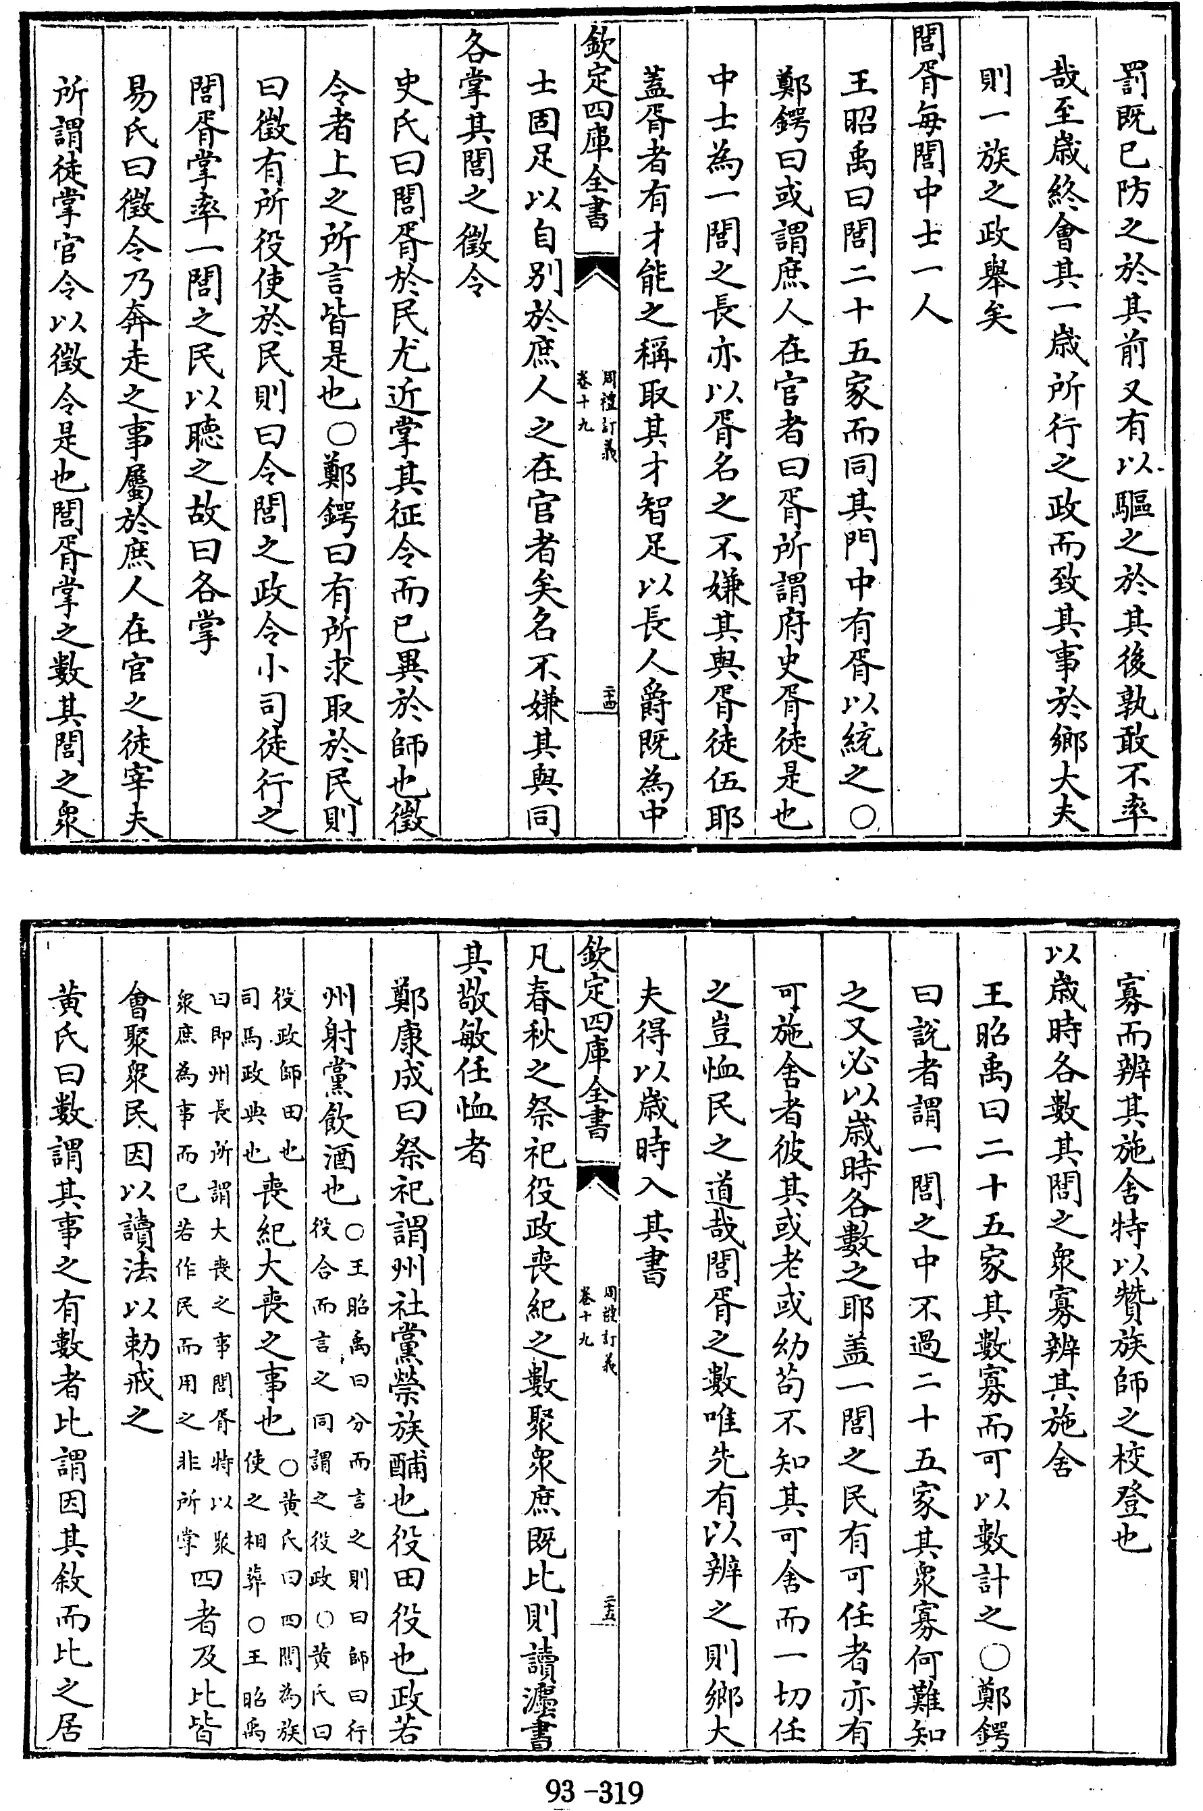 罰既已防之於其前又有以驅之於其後孰敢不率
哉至歳終會其一歳所行之政而致其事於鄉大夫
則一族之政舉矣
閭胥每閭中士一人
王昭禹曰閭二十五家而同其門中有胥以統之〇
鄭鍔曰或謂庶人在官者曰胥所謂府史胥徒是也
中士為一閭之長亦以胥名之不嫌其與胥徒伍耶
蓋胥者有才能之稱取其才智足以長人爵既為中
欽定四庫全書
周禮訂義
卷十九
二十四
士固足以自别於庶人之在官者矣名不嫌其與同
各掌其閭之徵令
史氏曰閭胥於民尤近掌其征令而已異於師也徵
令者上之所言皆是也〇鄭鍔曰有所求取於民則
曰徵有所役使於民則曰令閭之政令小司徒行之
閭胥掌率一閭之民以聽之故曰各掌
易氏曰徵令乃奔走之事屬於庶人在官之徒宰夫
所謂徒掌官令以徵令是也閭胥掌之數其閭之衆
寡而辨其施舍特以贊族師之校登也
以歳時各數其閭之衆寡辨其施舍
王昭禹曰二十五家其數寡而可以數計之〇鄭鍔
曰說者謂一閭之中不過二十五家其衆寡何難知
之又必以歳時各數之耶蓋一閭之民有可任者亦有
可施舍者彼其或老或幼苟不知其可舍而一切任
之豈恤民之道哉閭胥之數唯先有以辨之則鄉大
夫得以歳時入其書
欽定四庫全書
周禮訂義
卷十九
二十五
凡春秋之祭祀役政喪紀之數聚衆庶既比則讀灋書
其敬敏任恤者
鄭康成曰祭祀謂州社黨禜族酺也役田役也政若
州射黨飲酒也〇王昭禹曰分而言之則曰師曰行役合而言之同謂之役政〇黄氏曰
役政師田也司馬政典也喪紀大喪之事也〇黄氏曰四閭為族使之相葬〇王昭禹
曰即州長所謂大喪之事閭胥特以聚衆庶為事而已若作民而用之非所掌四者及比皆
會聚衆民因以讀法以勅戒之
黄氏曰數謂其事之有數者比謂因其敘而比之居
93-319